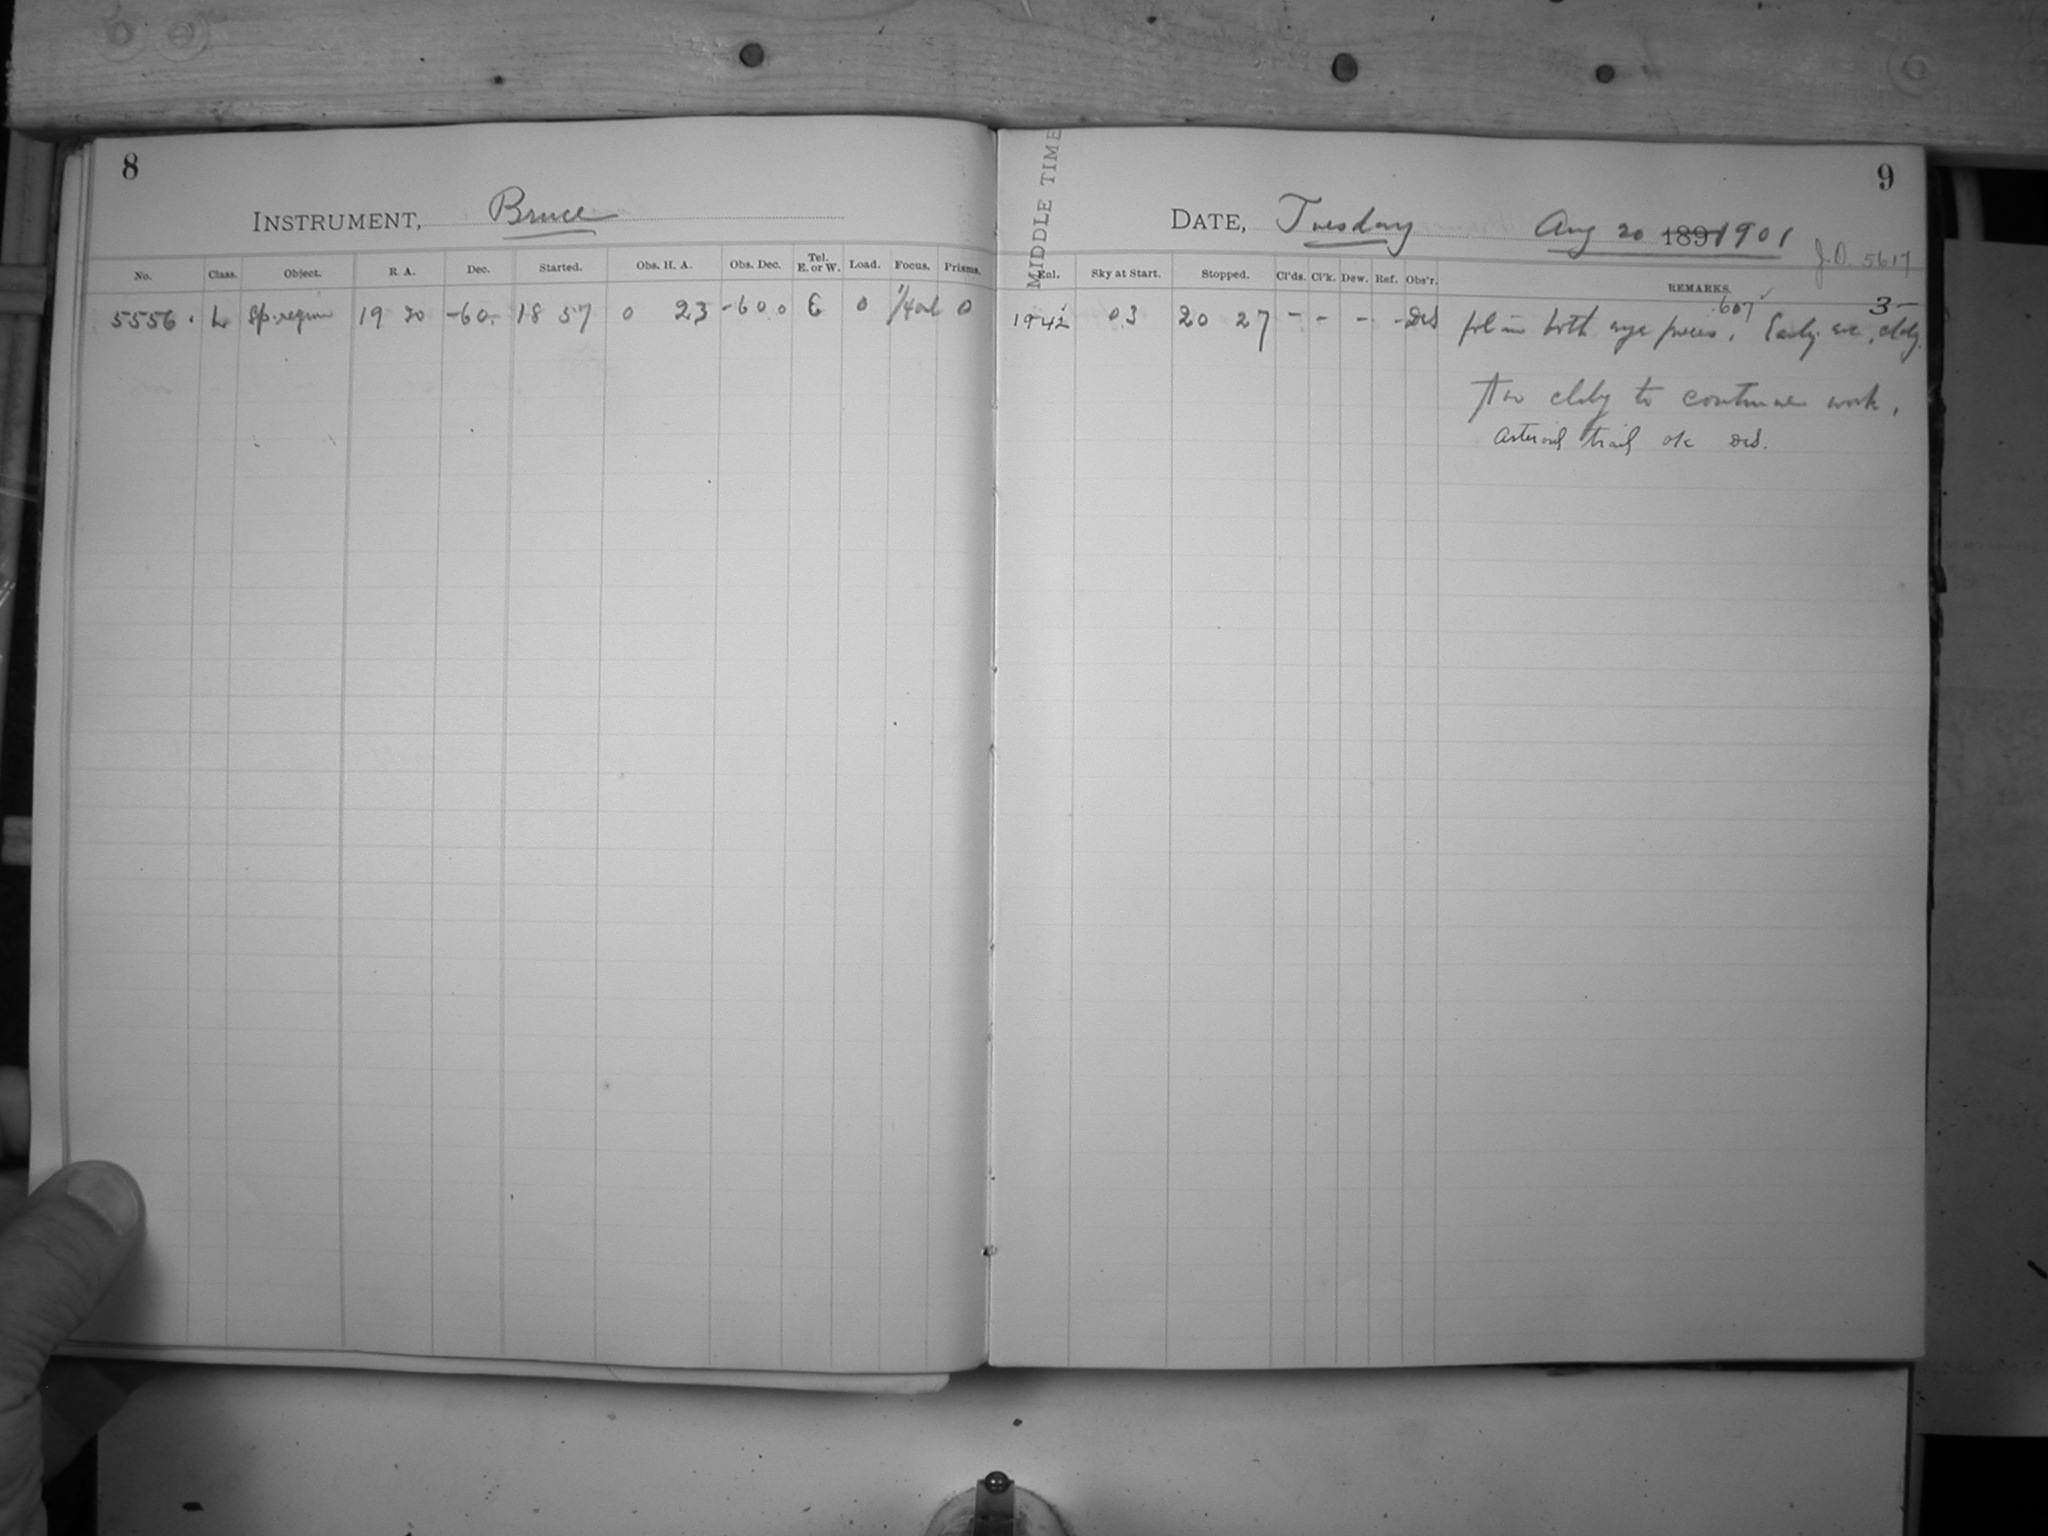 8
INSTRUMENT, Bruce
No. Class. Object. R. A. Dec. Started. Obs. H. A. Obs. Dec. Tel. E. or W. Load. Focus. Prisms.
5556 . L Sp. region 19 20 -60. 18 57 0 23 -60.0 E 0 0
9
MIDDLE TIME
DATE, Tuesday Aug 20 1891901
J.D. 5617
Enl. Sky at Start. Stopped. Cl'ds. Cl'k. Dew. Ref. Obs'r. REMARKS.
1942 03 20 27 - - - - fol in both eye pieces. .607 Early eve, cldy. 3-
Too cldy to continue work.
asteroid trail ok